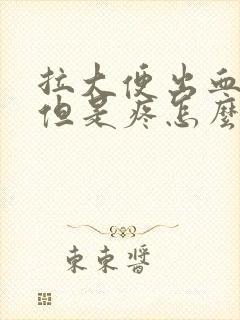 拉大便出血
但是疼怎麼
束束醬